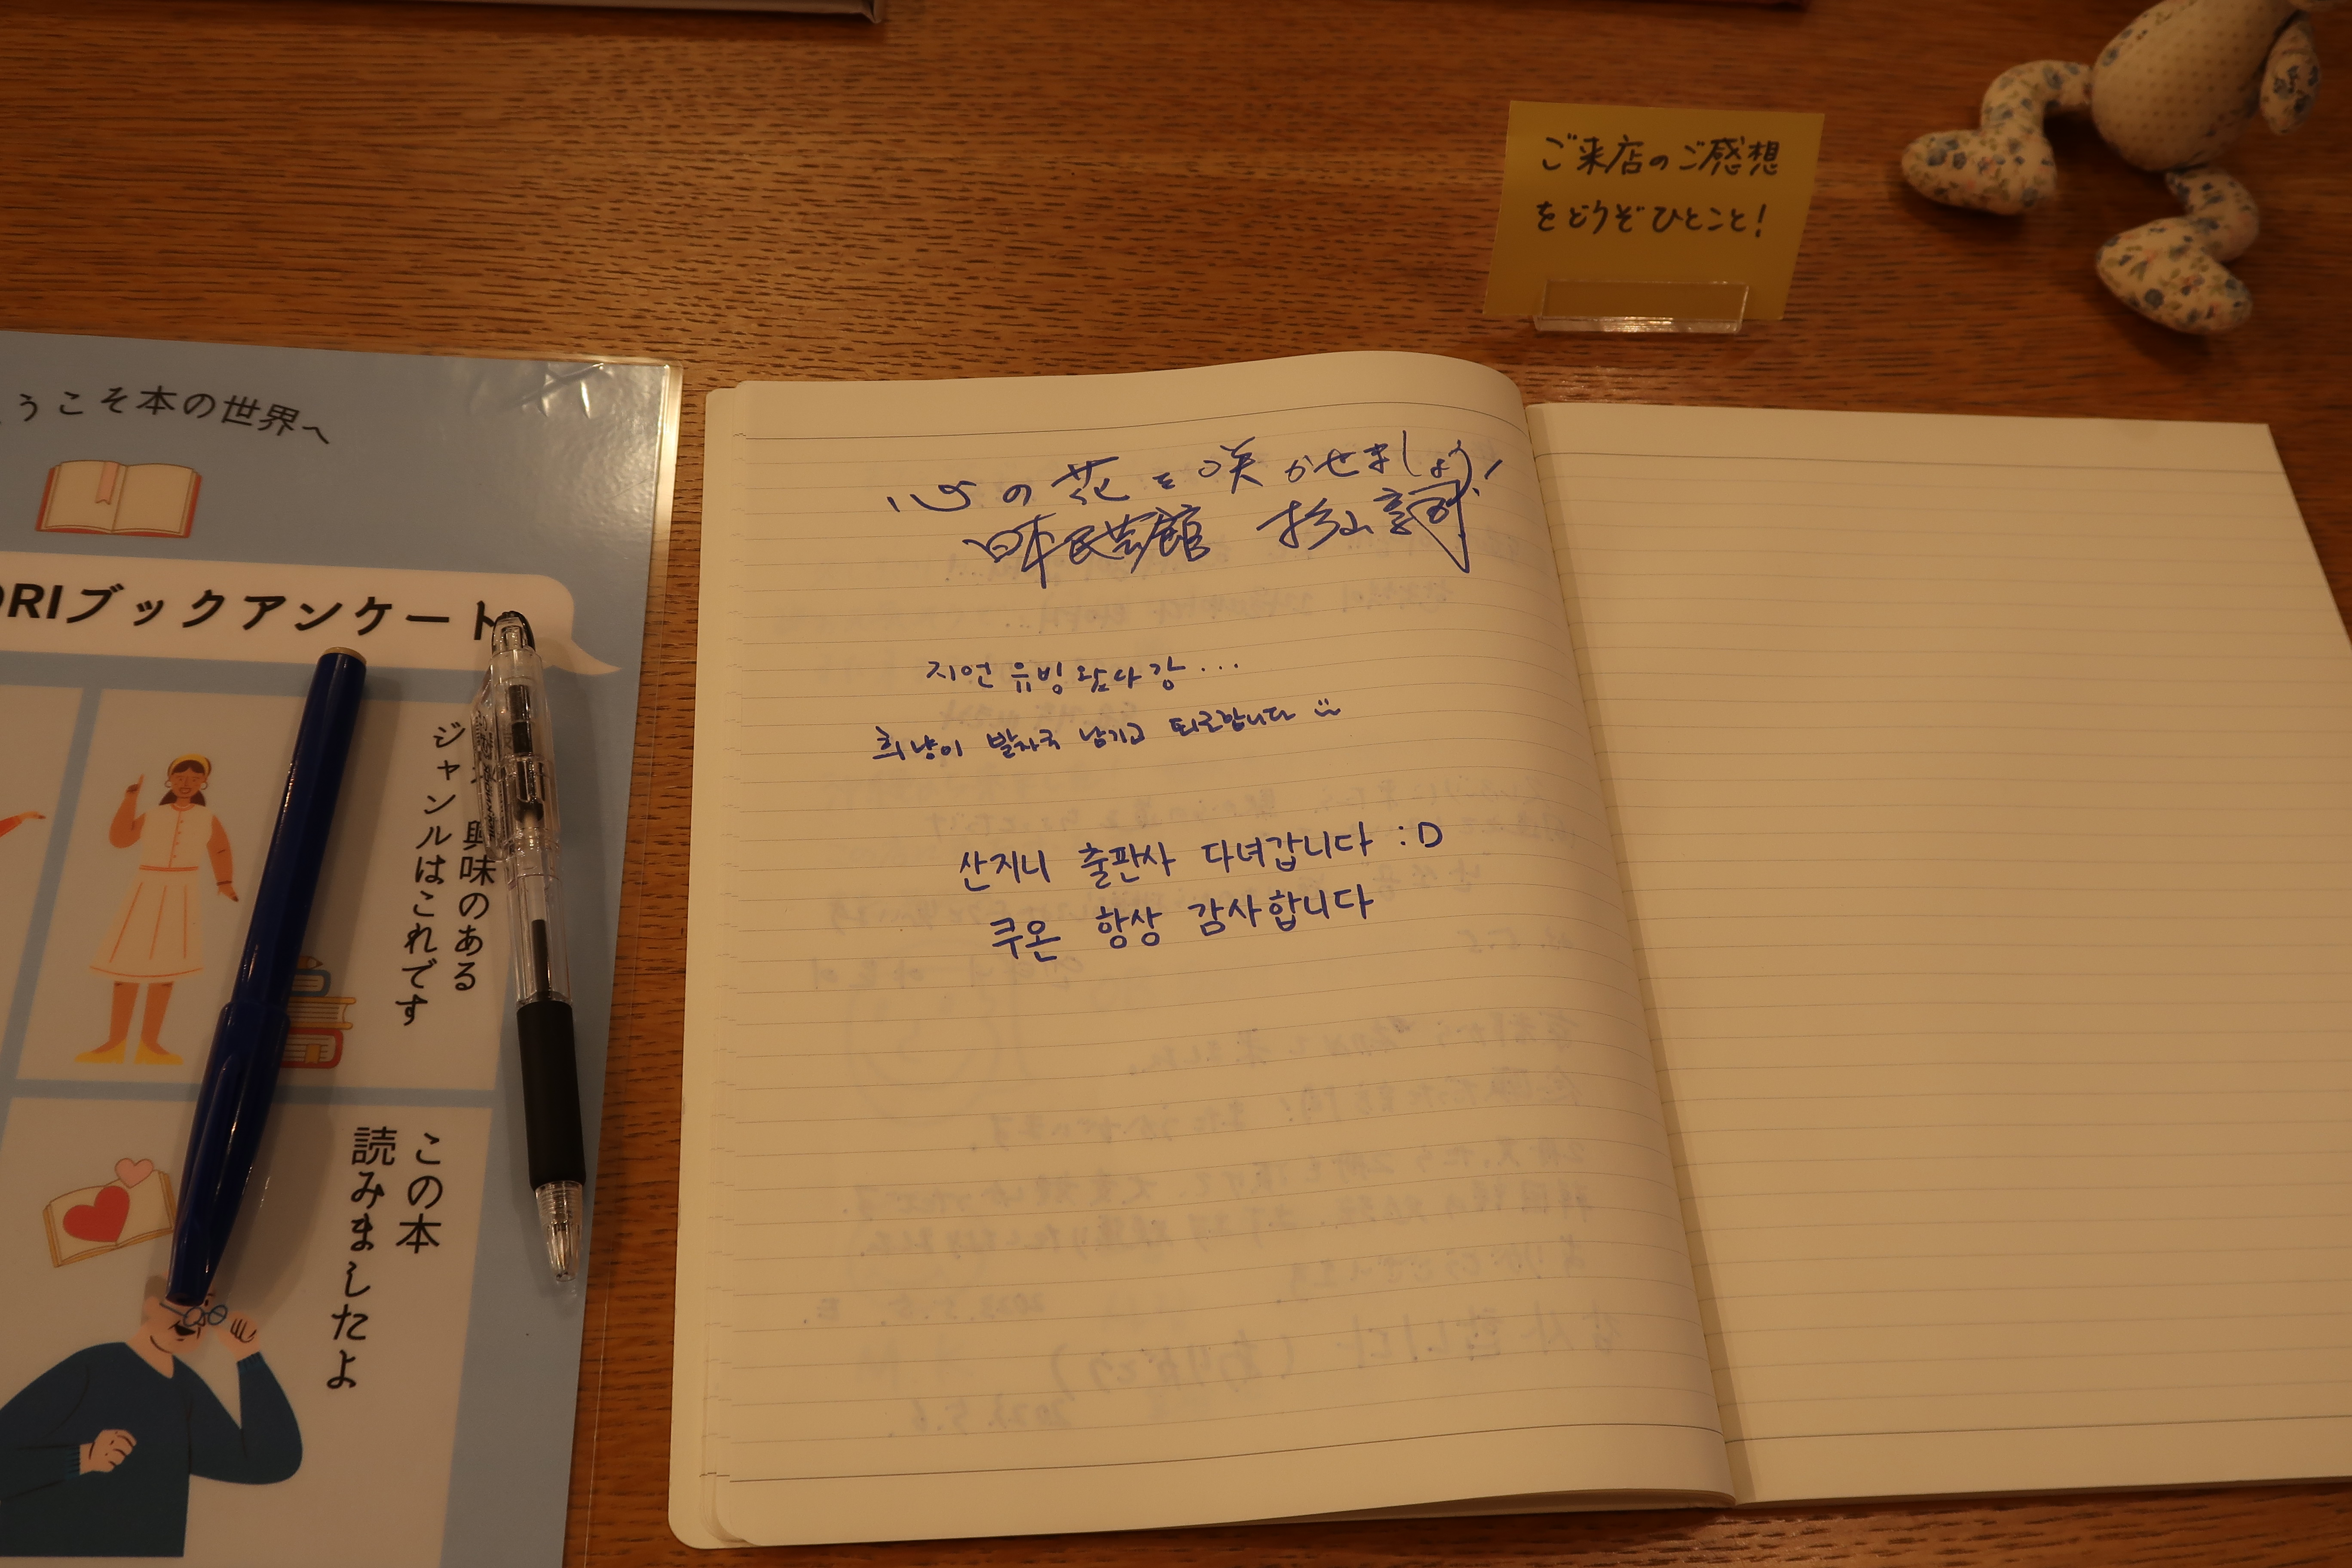 ご来店のご感想
をどうぞひとこと!
うこそ本の世界へ
ORIブックアンケート
興味のある
ジャンルはこれです
この本
読みましたよ
心の花を咲かせましょう!
日本民芸館 杉山
지언 유빙 왔다 감...
희냥이 발자국 남기고 퇴근합니다
산지니 출판사 다녀갑니다 :D
쿠온 항상 감사합니다